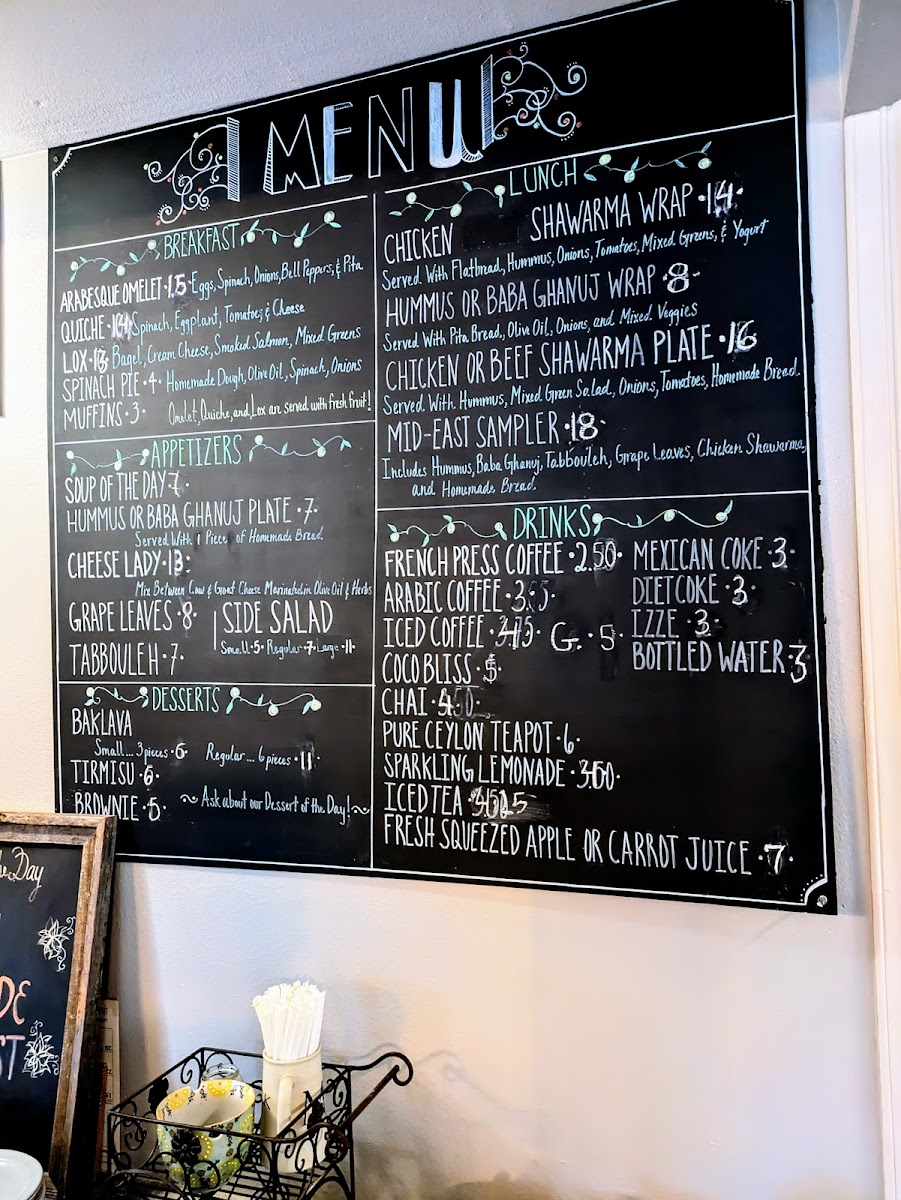 MENU
BREAKFAST
ARABESQUE OMELET · 15 · Eggs, Spinach, Onions, Bell Peppers, & Pita
QUICHE · 14 Spinach, Eggplant, Tomatoes, & Cheese
LOX · 13 Bagel, Cream Cheese, Smoked Salmon, Mixed Greens
SPINACH PIE · 4 · Homemade Dough, Olive Oil, Spinach, Onions
MUFFINS · 3 · Omelet, Quiche, and Lox are served with fresh fruit!
APPETIZERS
SOUP OF THE DAY 7 ·
HUMMUS OR BABA GHANUJ PLATE · 7 ·
Served With 1 Piece of Homemade Bread.
CHEESE LADY · 13 ·
Mix Between Cow & Goat Cheese Marinated in Olive Oil & Herbs
GRAPE LEAVES · 8 ·
TABBOULEH · 7 ·
SIDE SALAD
Small · 5 · Regular · 7 · Large · 11 ·
DESSERTS
BAKLAVA
Small... 3 pieces · 6 · Regular... 6 pieces · 11 ·
TIRMISU · 6 ·
BROWNIE · 5 · ~ Ask about our Dessert of the Day! ~
LUNCH
CHICKEN SHAWARMA WRAP · 14 ·
Served With Flatbread, Hummus, Onions, Tomatoes, Mixed Greens, & Yogurt
HUMMUS OR BABA GHANUJ WRAP · 8 ·
Served With Pita Bread, Olive Oil, Onions, and Mixed Veggies
CHICKEN OR BEEF SHAWARMA PLATE · 16
Served With Hummus, Mixed Green Salad, Onions, Tomatoes, Homemade Bread.
MID-EAST SAMPLER · 18 ·
Includes Hummus, Baba Ghanuj, Tabbouleh, Grape Leaves, Chicken Shawarma,
and Homemade Bread.
DRINKS
FRENCH PRESS COFFEE · 2.50 ·
ARABIC COFFEE ·
ICED COFFEE · G. · 5
COCO BLISS · 5 ·
CHAI ·
PURE CEYLON TEAPOT · 6 ·
SPARKLING LEMONADE ·
ICED TEA ·
FRESH SQUEEZED APPLE OR CARROT JUICE · 7 ·
MEXICAN COKE · 3 ·
DIET COKE · 3 ·
IZZE · 3 ·
BOTTLED WATER · 3
Day
DE
ST